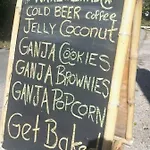 COLD BEER coffee
JELLY COCONUT
GANJA COOKIES
GANJA BROWNIES
GANJA POPCORN
Get Bake